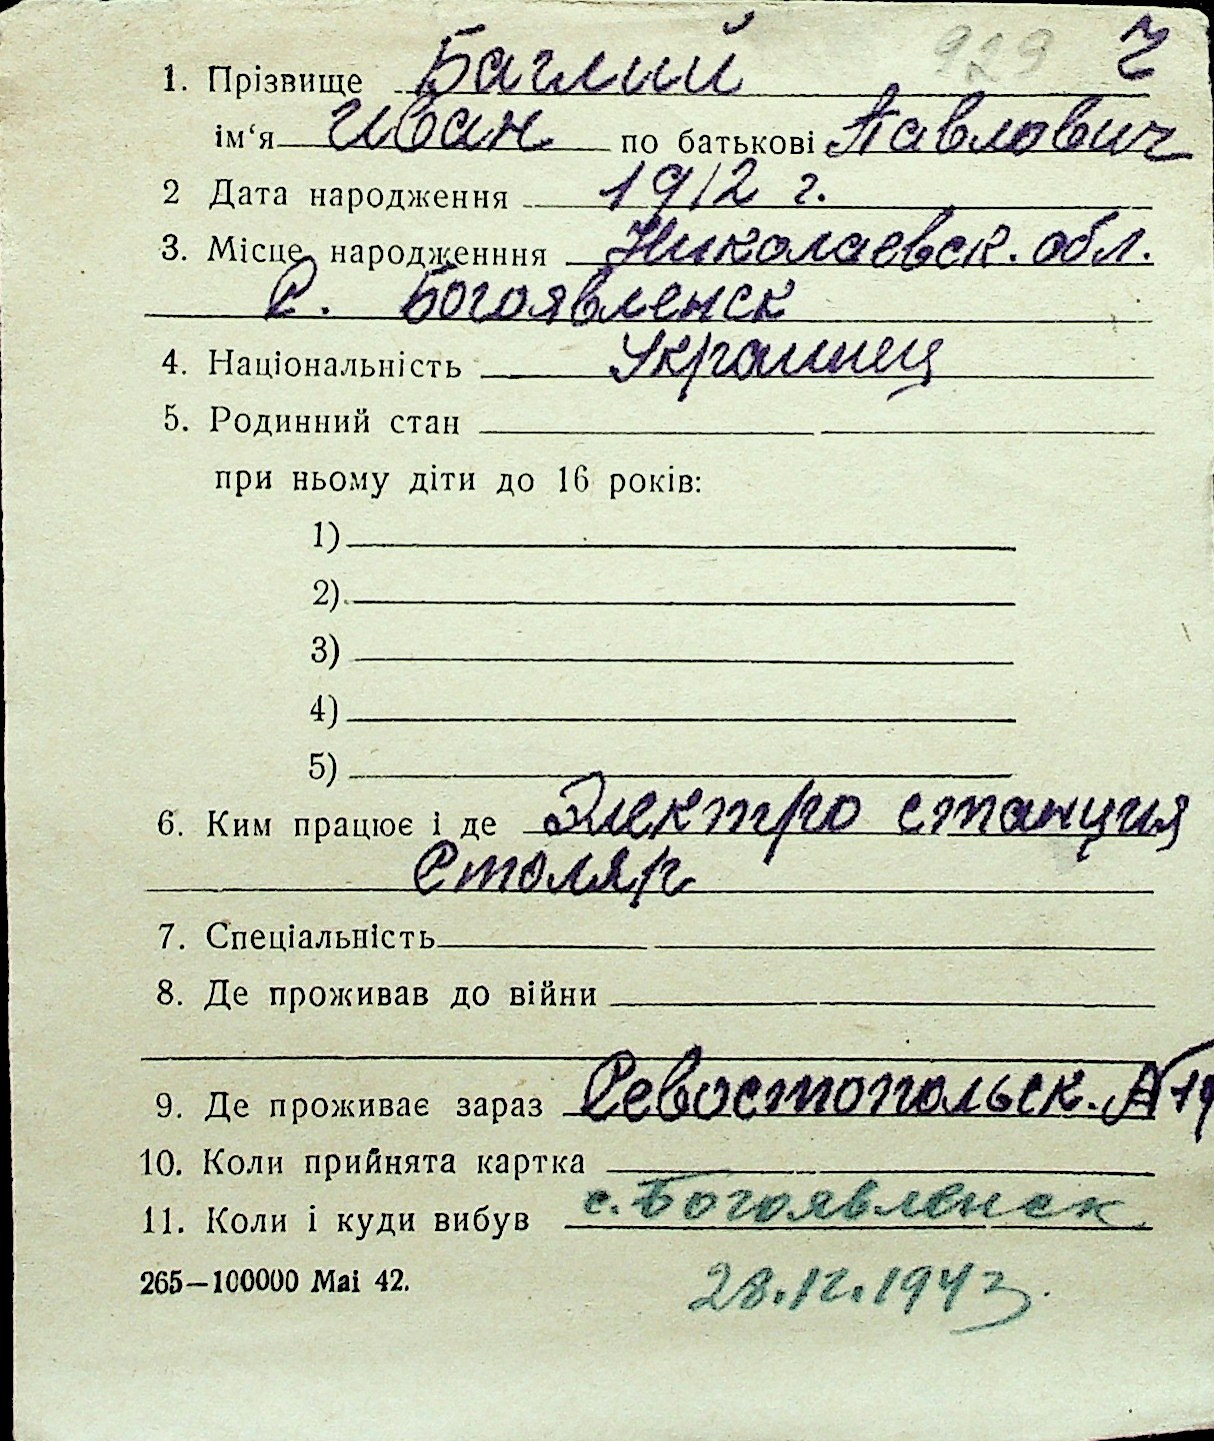 929 Ч
1. Прізвище Баглий
ім‘я Иван по батькові Павлович
2 Дата народження 1912 г.
3. Місце народженння Николаевск. обл.
С. Богоявленск
4. Національність Украинец
5. Родинний стан
при ньому діти до 16 років:
1)
2)
3)
4)
5)
6. Ким працює і де Электро станция
Столяр
7. Спеціальність
8. Де проживав до війни
9. Де проживає зараз Севостопольск. № 19
10. Коли прийнята картка
11. Коли і куди вибув с. Богоявленск
265—100000 Mai 42.
28.12.1943